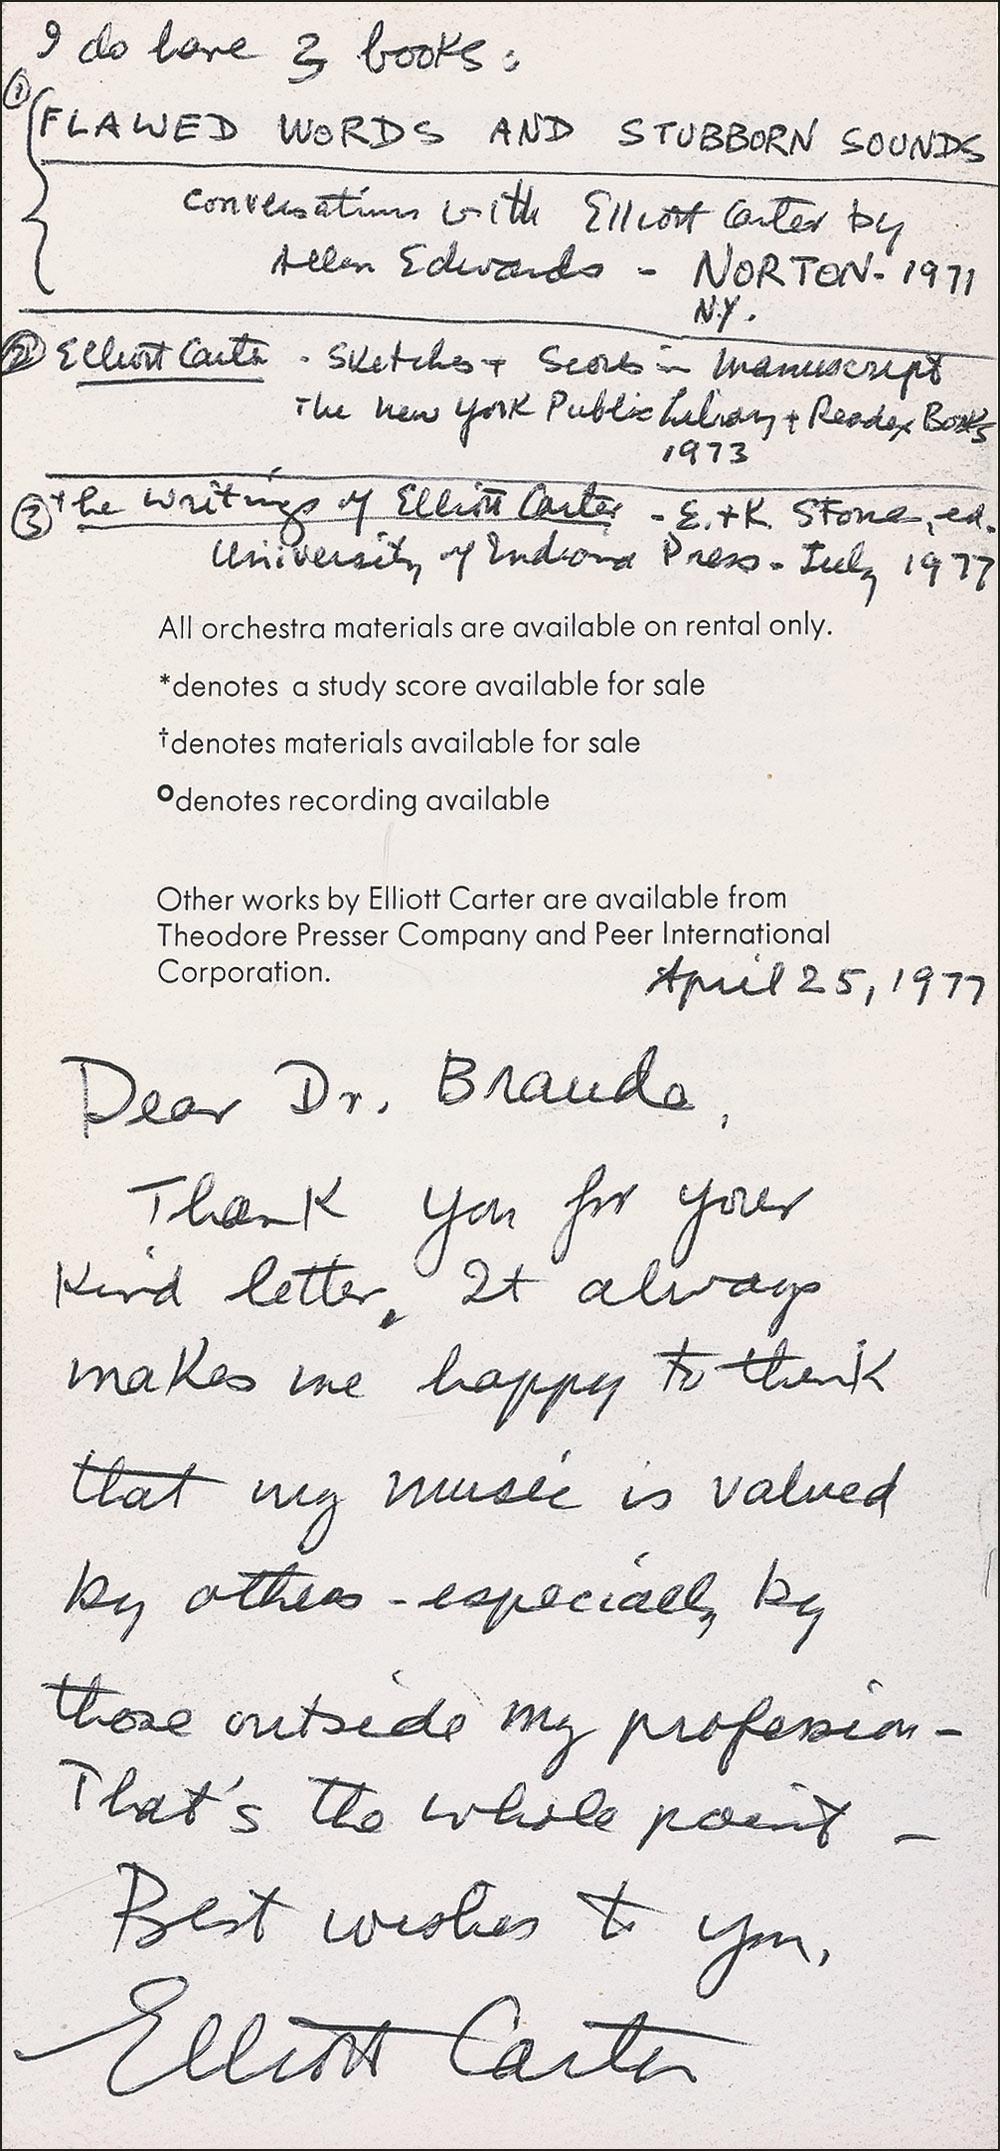 I do have 3 books:
① FLAWED WORDS AND STUBBORN SOUNDS
conversations with Elliott Carter by
Allen Edwards - NORTON - 1971
N.Y.
② Elliott Carter - Sketches + Scores in Manuscript
The New York Public Library + Readex Books
1973
③ The Writings of Elliott Carter - E. + K. Stone, ed.
University of Indiana Press - July 1977
All orchestra materials are available on rental only.
*denotes a study score available for sale
†denotes materials available for sale
°denotes recording available
Other works by Elliott Carter are available from
Theodore Presser Company and Peer International
Corporation.
April 25, 1977
Dear Dr. Braude,
Thank you for your
kind letter. It always
makes me happy to think
that my music is valued
by others - especially by
those outside my profession -
That's the whole point -
Best wishes to you,
Elliott Carter